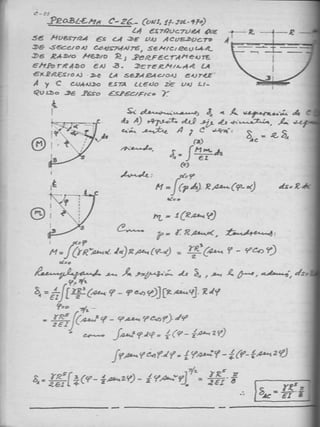 C-25
PROBLEMA C-26.- (UNI, 17-JUL-974)
LA ESTRUCTURA QUE
SE MUESTRA ES LA DE UN ACUEDUCTO
DE SECCION CONSTANTE, SEMICIRCULAR
DE RADIO MEDIO R; PERFECTAMENTE
EMPOTRADO EN B. DETERMINAR LA
EXPRESION DE LA SEPARACION ENTRE
A Y C CUANDO ESTA LLENO DE UN LI-
QUIDO DE PESO ESPECIFICO γ.
A R R C
B
Si denominamos δ₁ a la separación de C
de A) respecto del eje de simetria, la
ción entre A y C será: δ_AC = 2 δ₁
M
siendo, δ₁ = ∫ M m ds / EI
donde: M = ∫ (p ds) R sen(φ-α) ds = R d
m
m = 1 (R sen φ)
Como p = γ R sen α, tendremos:
M = ∫ (γ R² sen α dα) R sen(φ-α) = γR³/2 (sen φ - φ cos φ)
Reemplazando en la expresión de δ₁, en la que, además, ds =
δ₁ = 1/EI ∫ [γR³/2 (sen φ - φ cos φ)] [R sen φ] R dφ
= γR⁵/2EI ∫ (sen² φ - φ sen φ cos φ) dφ
como ∫ sen² φ dφ = ½ (φ - ½ sen 2φ)
∫ φ sen φ cos φ dφ = ½ φ sen² φ - ¼ (φ - ½ sen 2φ)
δ₁ = γR⁵/2EI [¾ (φ - ½ sen 2φ) - ½ φ sen² φ] = γR⁵/2EI · π/8
∴ δ_AC = γR⁵/EI π/8